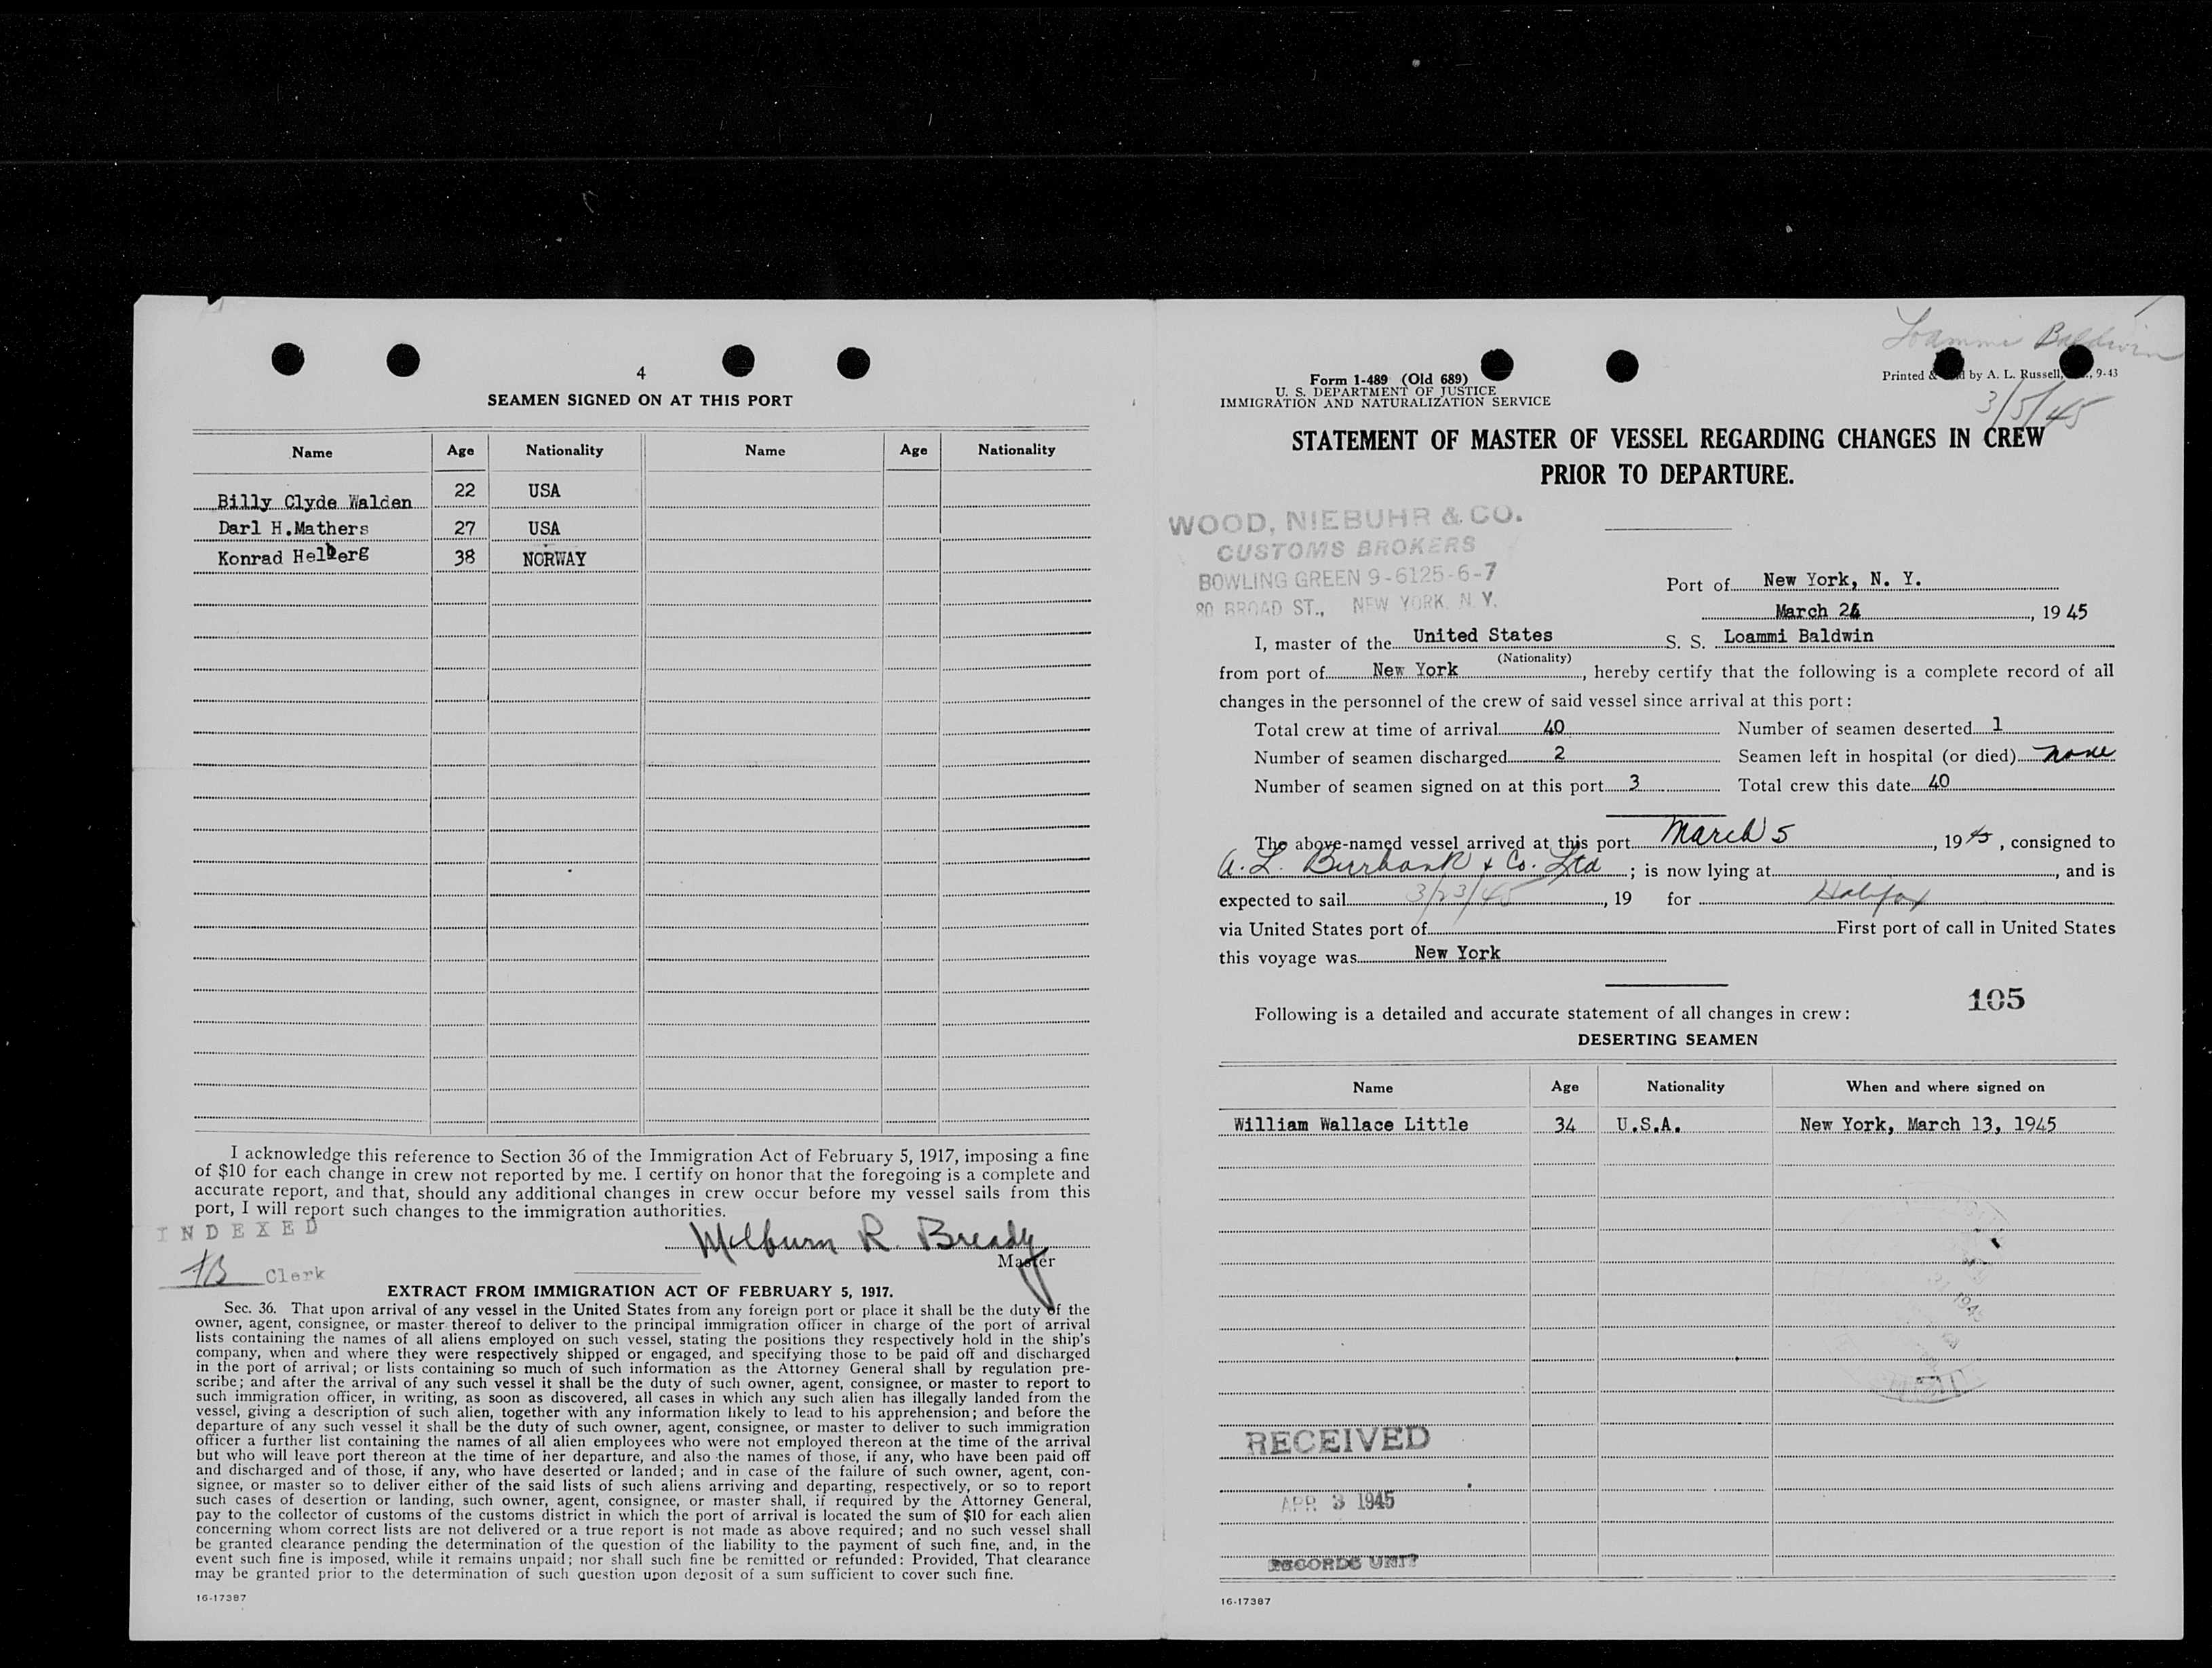 4
SEAMEN SIGNED ON AT THIS PORT
Name Age Nationality Name Age Nationality
Billy Clyde Walden 22 USA
Darl H.Mathers 27 USA
Konrad Helberg 38 NORWAY
I acknowledge this reference to Section 36 of the Immigration Act of February 5, 1917, imposing a fine
of $10 for each change in crew not reported by me. I certify on honor that the foregoing is a complete and
accurate report, and that, should any additional changes in crew occur before my vessel sails from this
port, I will report such changes to the immigration authorities.
INDEXED
Milburn R. Bready
Master
Clerk
EXTRACT FROM IMMIGRATION ACT OF FEBRUARY 5, 1917.
Sec. 36. That upon arrival of any vessel in the United States from any foreign port or place it shall be the duty of the
owner, agent, consignee, or master thereof to deliver to the principal immigration officer in charge of the port of arrival
lists containing the names of all aliens employed on such vessel, stating the positions they respectively hold in the ship's
company, when and where they were respectively shipped or engaged, and specifying those to be paid off and discharged
in the port of arrival; or lists containing so much of such information as the Attorney General shall by regulation pre-
scribe; and after the arrival of any such vessel it shall be the duty of such owner, agent, consignee, or master to report to
such immigration officer, in writing, as soon as discovered, all cases in which any such alien has illegally landed from the
vessel, giving a description of such alien, together with any information likely to lead to his apprehension; and before the
departure of any such vessel it shall be the duty of such owner, agent, consignee, or master to deliver to such immigration
officer a further list containing the names of all alien employees who were not employed thereon at the time of the arrival
but who will leave port thereon at the time of her departure, and also the names of those, if any, who have been paid off
and discharged and of those, if any, who have deserted or landed; and in case of the failure of such owner, agent, con-
signee, or master so to deliver either of the said lists of such aliens arriving and departing, respectively, or so to report
such cases of desertion or landing, such owner, agent, consignee, or master shall, if required by the Attorney General,
pay to the collector of customs of the customs district in which the port of arrival is located the sum of $10 for each alien
concerning whom correct lists are not delivered or a true report is not made as above required; and no such vessel shall
be granted clearance pending the determination of the question of the liability to the payment of such fine, and, in the
event such fine is imposed, while it remains unpaid; nor shall such fine be remitted or refunded: Provided, That clearance
may be granted prior to the determination of such question upon deposit of a sum sufficient to cover such fine.
16-17387
Loammi Baldwin
Form 1-489 (Old 689)
U. S. DEPARTMENT OF JUSTICE
IMMIGRATION AND NATURALIZATION SERVICE
Printed & by A. L. Russell, 9-43
3/5/45
STATEMENT OF MASTER OF VESSEL REGARDING CHANGES IN CREW
PRIOR TO DEPARTURE.
WOOD, NIEBUHR & CO.
CUSTOMS BROKERS
BOWLING GREEN 9-6125-6-7
80 BROAD ST., NEW YORK, N. Y.
Port of New York, N. Y.
March , 1945
I, master of the United States S. S. Loammi Baldwin
(Nationality)
from port of New York, hereby certify that the following is a complete record of all
changes in the personnel of the crew of said vessel since arrival at this port:
Total crew at time of arrival 40 Number of seamen deserted 1
Number of seamen discharged 2 Seamen left in hospital (or died) none
Number of seamen signed on at this port 3 Total crew this date 40
The above-named vessel arrived at this port March 5, 1945, consigned to
A. L. Burbank & Co. Ltd; is now lying at , and is
expected to sail 3/23/45, 19 for Halifax
via United States port of First port of call in United States
this voyage was New York
105
Following is a detailed and accurate statement of all changes in crew:
DESERTING SEAMEN
Name Age Nationality When and where signed on
William Wallace Little 34 U.S.A. New York, March 13, 1945
RECEIVED
APR 3 1945
RECORDS UNIT
16-17387